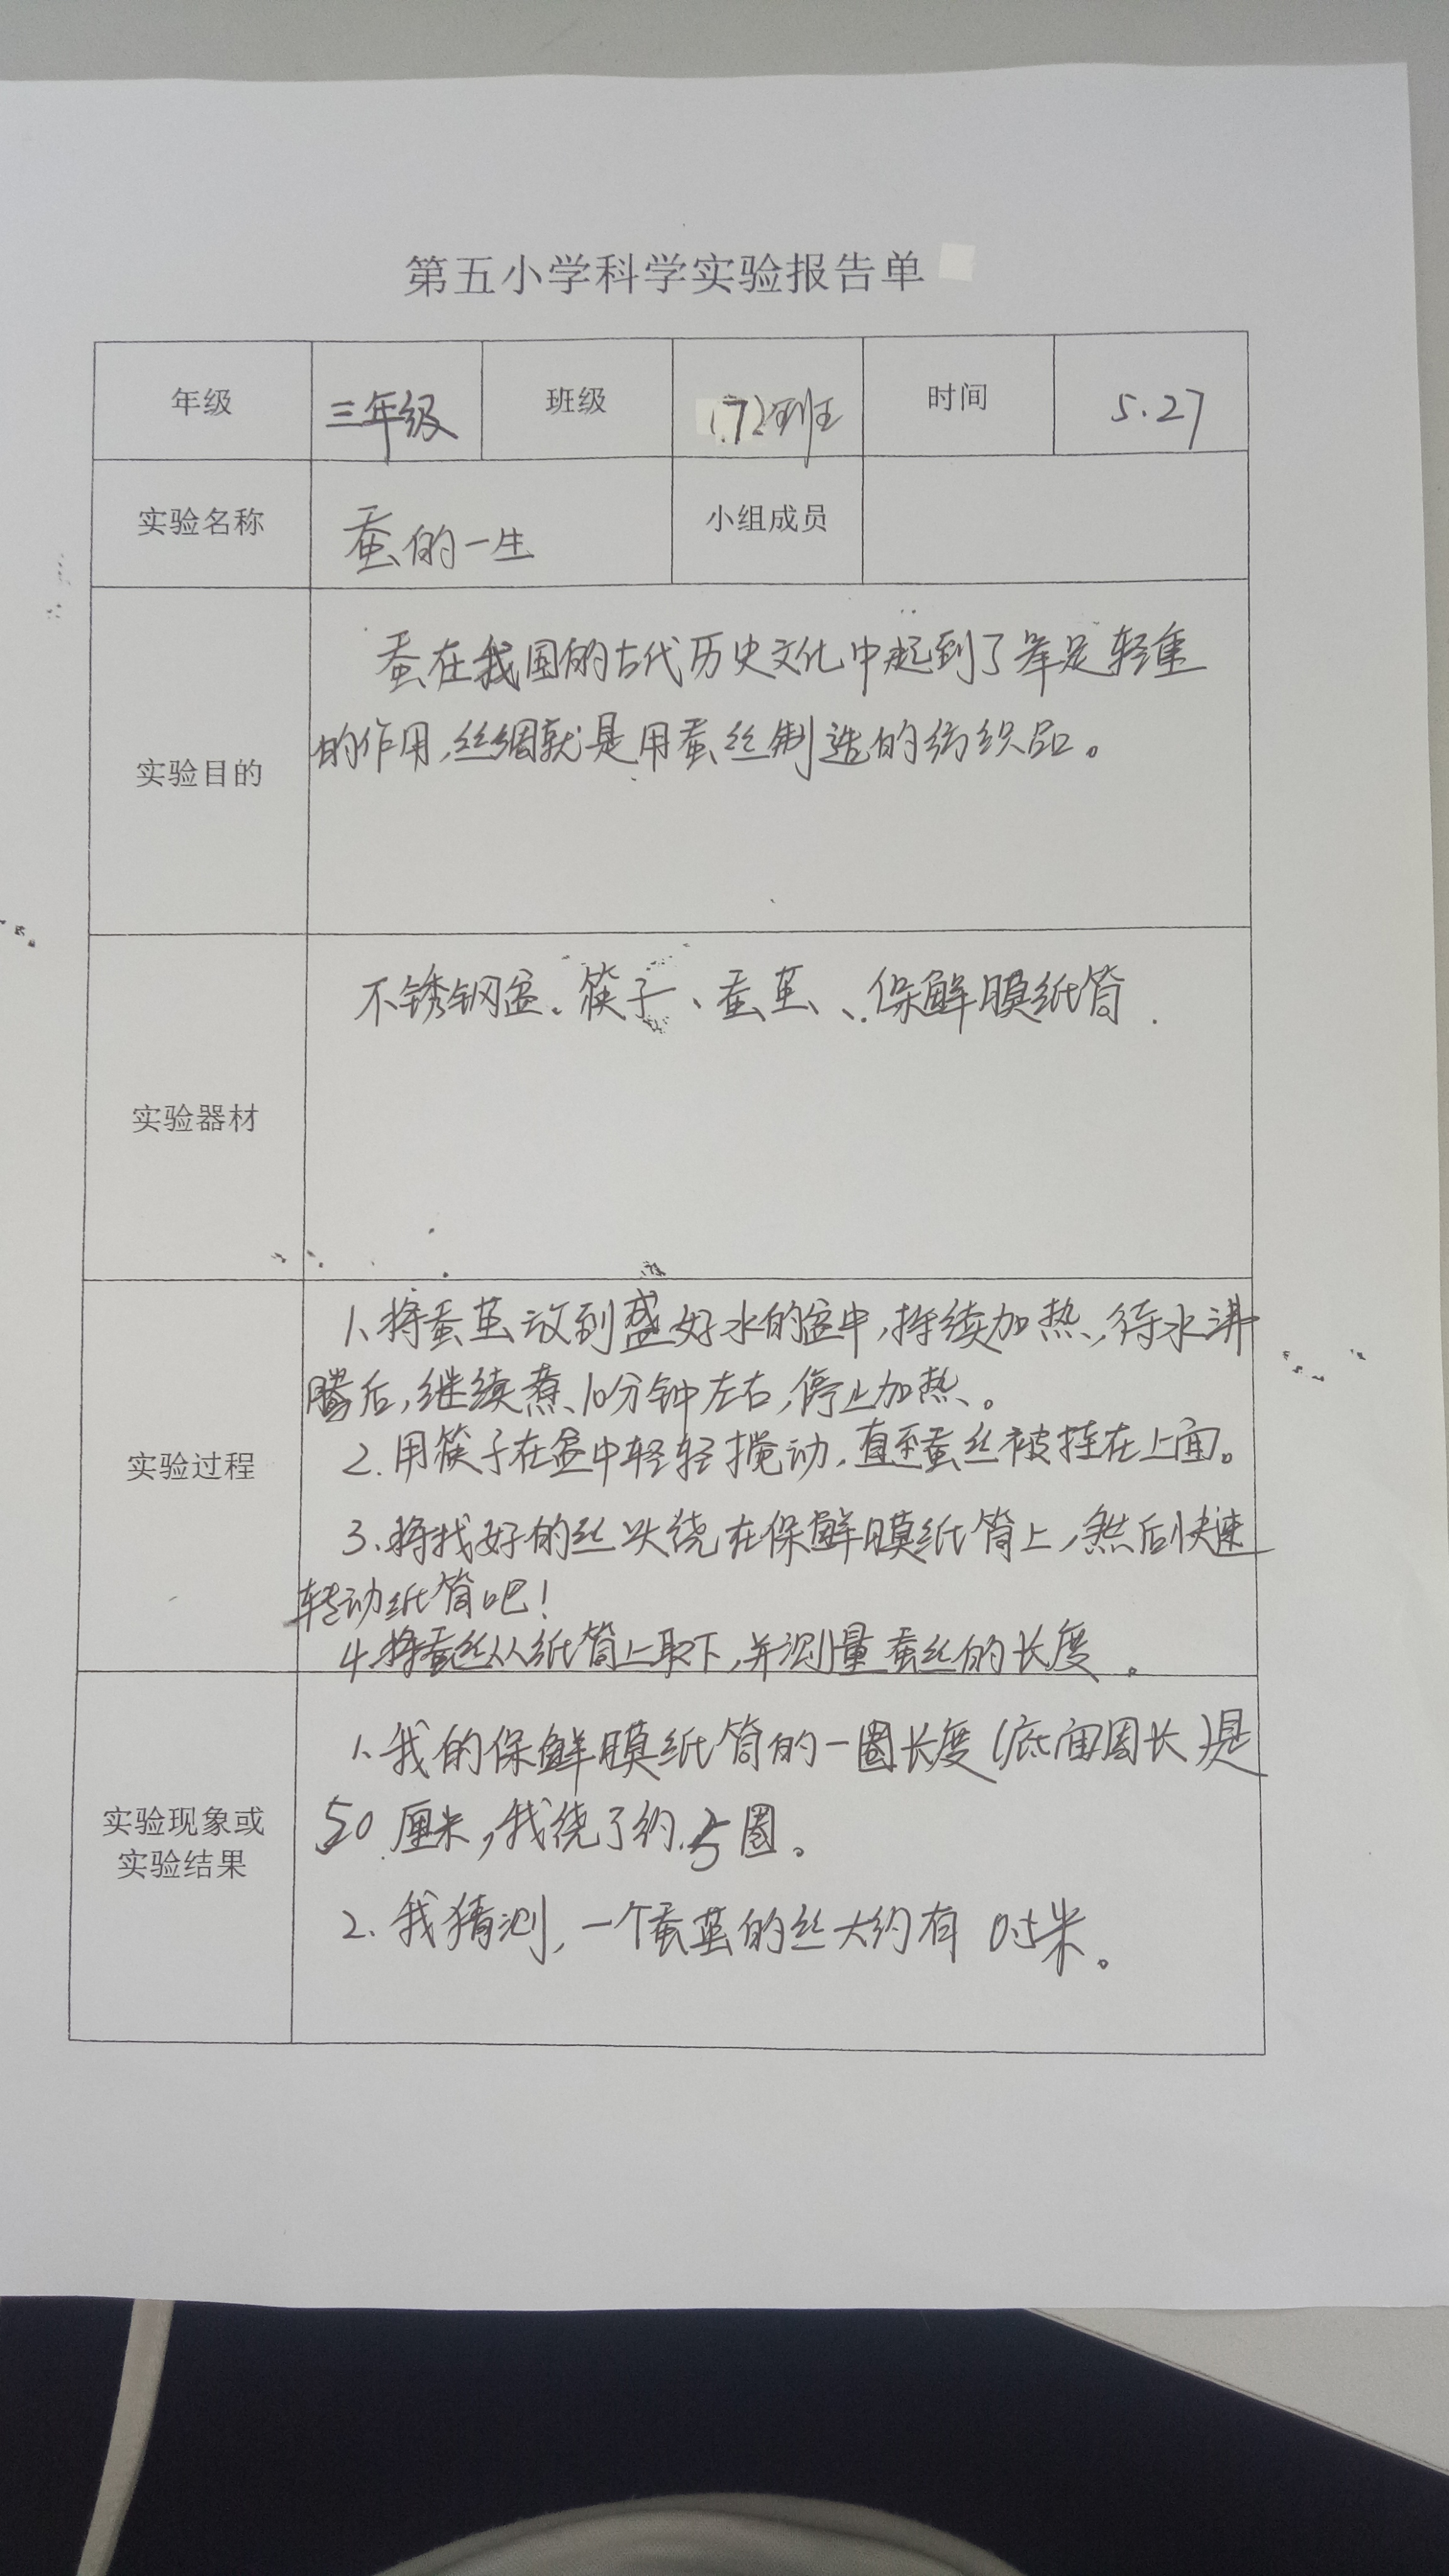 第五小学科学实验报告单
年级 三年级 班级 172班 时间 5.27
实验名称 蚕的一生 小组成员
实验目的
蚕在我国的古代历史文化中起到了举足轻重
的作用,丝绸就是用蚕丝制造的纺织品。
实验器材
不锈钢盆、筷子、蚕茧、保鲜膜纸筒.
实验过程
1、将蚕茧放到盛好水的盆中,持续加热,待水沸
腾后,继续煮10分钟左右,停止加热。
2.用筷子在盆中轻轻搅动,直至蚕丝被挂在上面。
3、将找好的丝头绕在保鲜膜纸筒上,然后快速
转动纸筒吧!
4.将蚕丝从纸筒上取下,并测量蚕丝的长度。
实验现象或
实验结果
1、我的保鲜膜纸筒的一圈长度(底面周长)是
50厘米,我绕了约5圈。
2.我猜测,一个蚕茧的丝大约有 米。